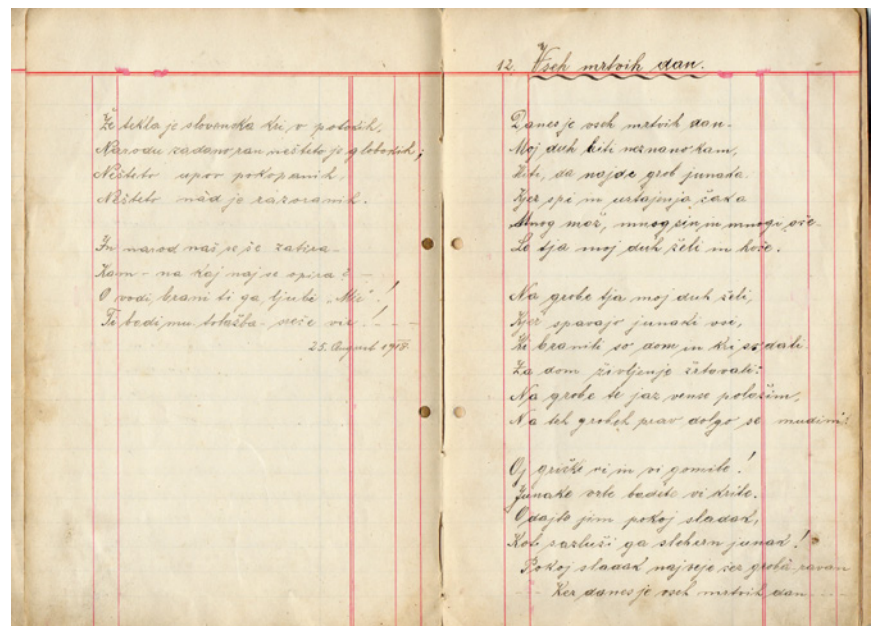 Že tekla je slovenska kri v potokih,
Narodu zadano ran nešteto je globokih;
Nešteto upov pokopanih,
Nešteto nád je razoranih.
In narod naš se še zatira-
Kam - na kaj naj se opira? -
O vodi, brani ti ga, ljubi "Mir"!
Ti bodi mu tolažba - sreče vir! - - -
25. August 1918.
12. Vseh mrtvih dan.
Danes je vseh mrtvih dan-
Moj duh hiti neznano kam,
Hiti, da najde grob junaka
Kjer spi in vstajenja čaka
Mnog mož, mnog sin in mnogi oče-
Le tja moj duh želi in hoče.
Na grobe tja moj duh želi,
Kjer spavajo junaki vsi,
Ki branili so dom in kri so dali
Za dom življenje žrtovali:
Na grobe te jaz vence položim,
Na teh grobeh prav dolgo se mudim!
Oj grički vi in vi gomile!
Junake vrle bodete vi krile.
O dajte jim pokoj sladak,
Kot zasluži ga slehern junak!
Pokoj sladak naj veje čez grobá ravan
Ker danes je vseh mrtvih dan - - -